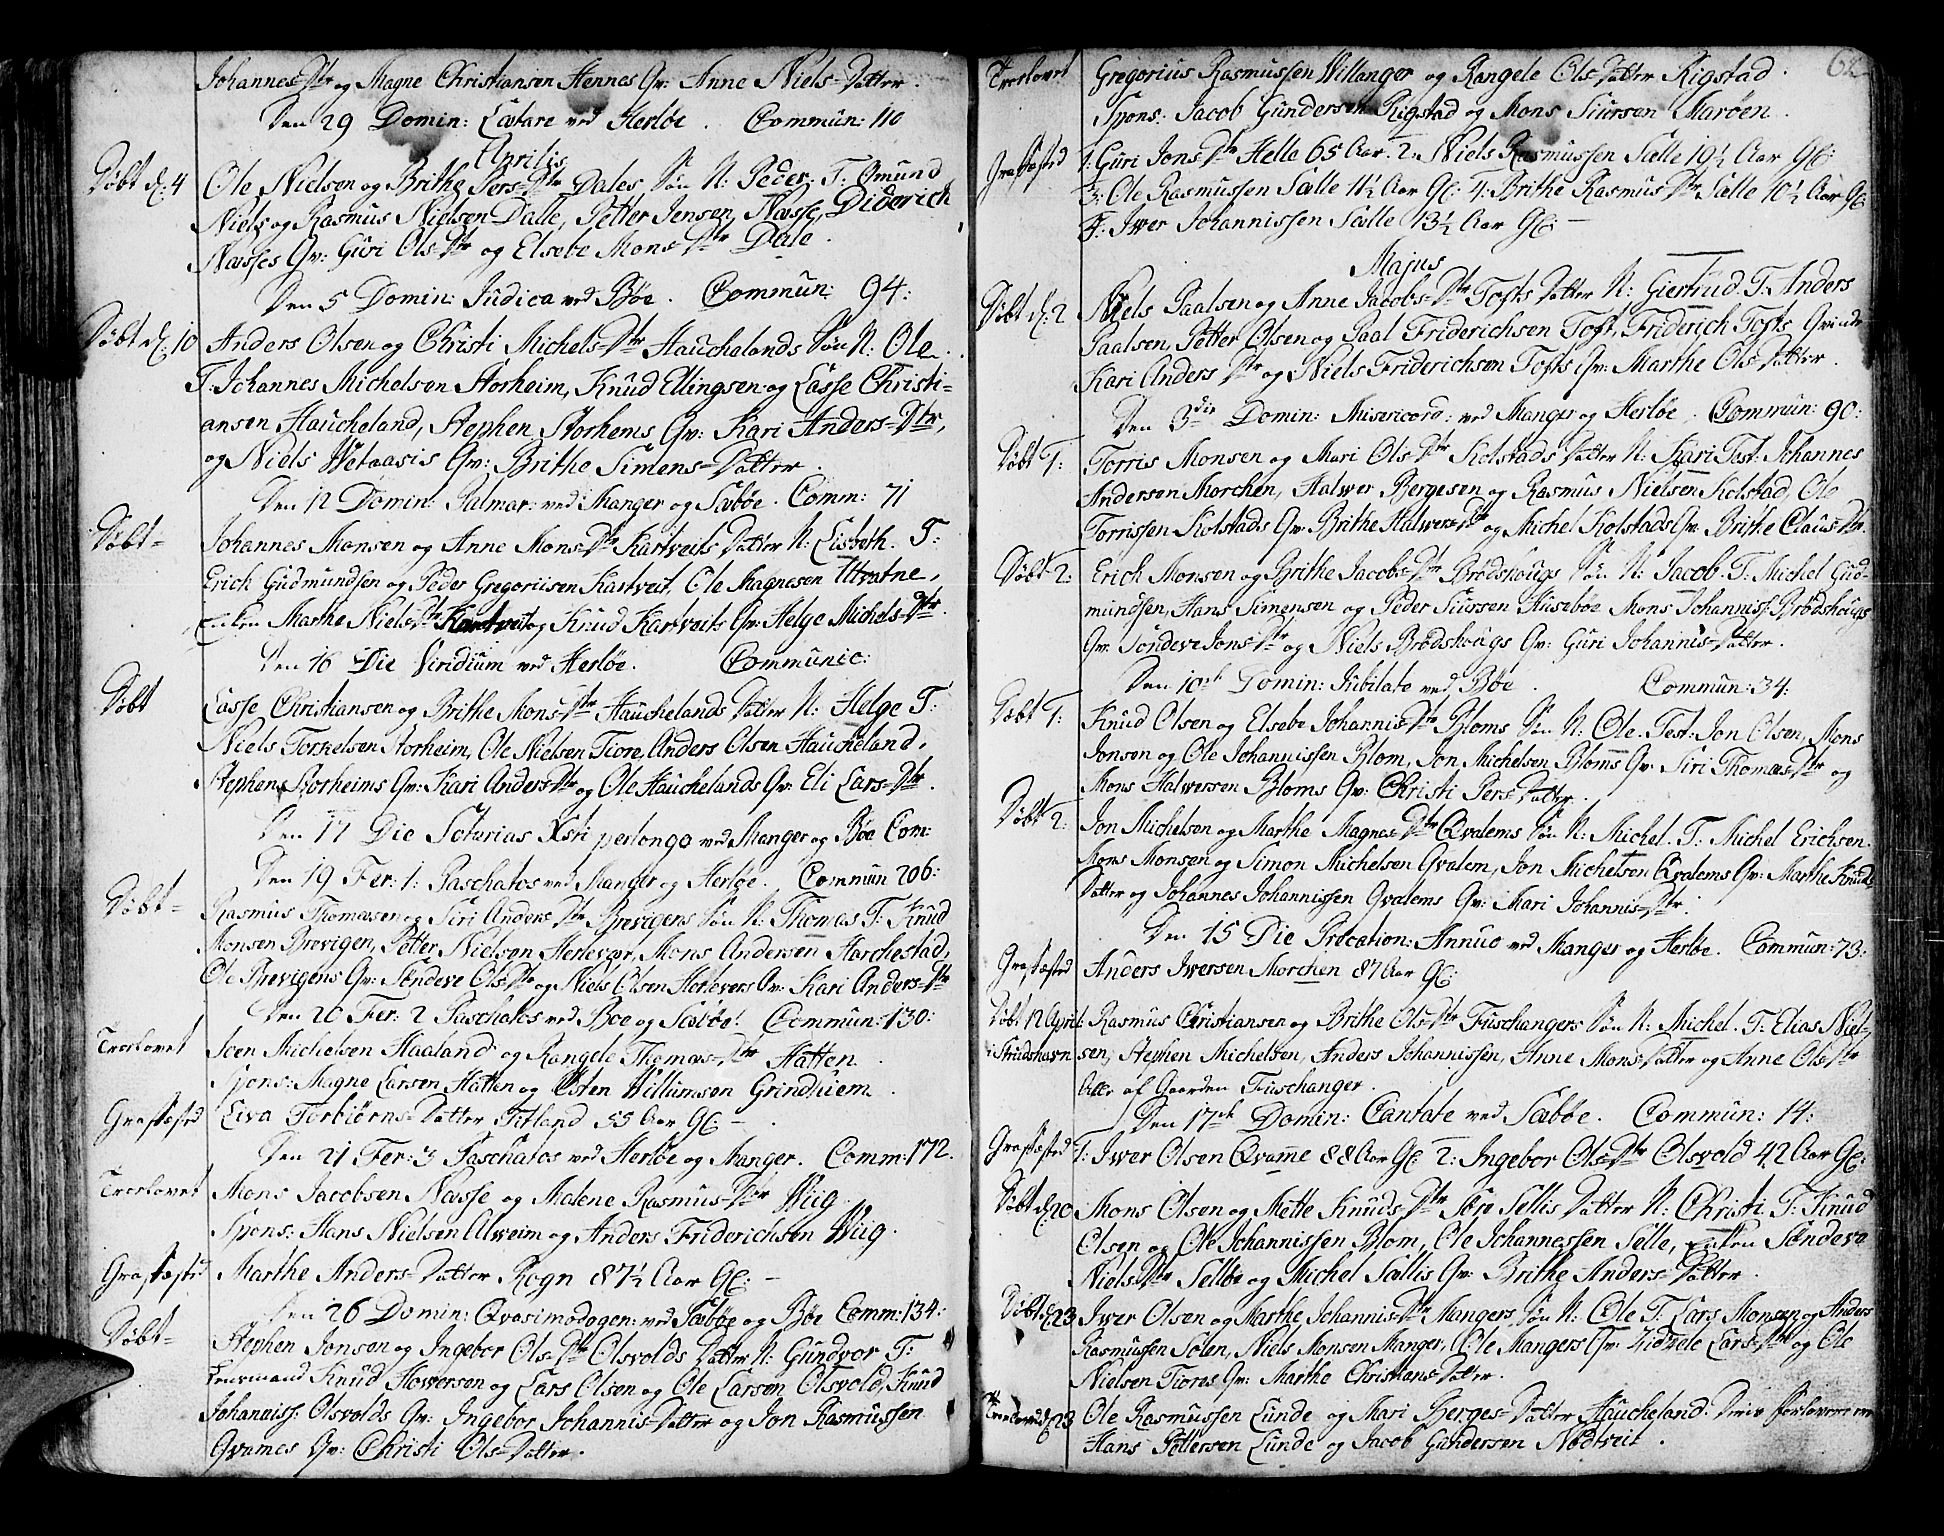 Johannes-Dtr og Magne Christiansen Hennes Qv: Anne Niels-Datter.
Den 29 Domin: Lætare ved Herløe. Commun: 110
Aprilis
Døbt d: 4 Ole Nielsen og Brithe Pers-Dtr Dales Søn N: Peder. T. Omund
Niels og Rasmus Nielsen Dalle, Petter Jensen Næsse, Diderich
Næsses Qv: Guri Ols-Dtr og Elsebe Mons-Dtr Dale.
Den 5 Domin: Judica ved Bøe. Commun: 94:
Døbt d. 10 Anders Olsen og Christi Michels-Dtr Hauchelands Søn N: Ole.
T. Johannes Michelsen Storheim, Knud Ellingsen og Lasse Christi-
ansen Haucheland, Stephen Storhems Qv: Kari Anders-Dtr,
og Niels Wetaasis Qv: Brithe Simens-Datter.
Den 12 Domin: Palmar: ved Manger og Sæbøe. Comm: 71
Døbt- Johannes Monsen og Anne Mons-Dtr Kartveits Datter N: Lisbeth. T:
Erick Gudmundsen og Peder Gregoriisen Kartveit, Ole Magnesen Utvatne,
Enken Marthe Niels Dtr Kartveit og Knud Kartveits Qv: Helge Michels-Dtr.
Den 16 Die Viridium ved Herløe. Communic:
Døbt Lasse Christiansen og Brithe Mons-Dtr Hauchelands Datter N: Helge T:
Niels Torkelsen Storheim, Ole Nielsen Tiore, Anders Olsen Haucheland,
Stephen Storheims Qv: Kari Anders-Dtr og Ole Hauchelands Qv: Eli Lars-Dtr.
Den 17 Die Soterias Xsti perlongo ved Manger og Bøe Com:
Den 19 Fer: 1: Paschatos ved Manger og Herløe. Commun 206:
Døbt- Rasmus Thomæsen og Siri Anders Dtr Brevigens Søn N: Thomas T: Knud
Monsen Brevigen, Petter Nielsen Herlevær, Mons Andersen Harchestad,
Ole Brevigens Qv: Søndeve Ols-Dtr og Niels Olsen Herlevers Qv: Kari Anders-Dtr
Den 20 Fer: 2 Paschatos ved Bøe og Sæbøe. Commun: 130:
Troelovet Steen Michelsen Haaland og Rangele Thomæs-Dtr Hatten.
Spons: Magne Larsen Hatten og Østen Willumsen Grindheim.
Grafæsted Eiva Torbiørns-Datter Titland 55 Aar Gl: -
Den 21 Fer: 3 Paschatos ved Herløe og Manger. Comm: 172.
Troelovet Mons Jacobsen Næsse og Malene Rasmus-Dtr Wiig.
Spons: Hans Nielsen Alweim og Anders Friderichsen Wiig.
Grafæsted Marthe Anders-Datter Rogn 87½ Aar Gl: -
Den 26 Domin: Qvasimodogen: ved Sæbøe og Bøe Comm: 134:
Døbt- Stephen Jonsen og Ingebor Ols-Dtr Olsvolds Datter N: Gundvor T:
Lensmand Knud Howersen og Lars Olsen og Ole Larsen Olsvold, Knud
Johanniss: Olsvolds Qv: Ingebor Johannis-Datter og Jon Rasmussen
Qvames Qv: Christi Ols-Datter.
62
Troelovet Gregorius Rasmussen Willanger og Rangele Ols-Datter Rigstad.
Spons: Jacob Gundersen Rigstad og Mons Siursen Marøen.
Grafæsted 1: Guri Jons-Dtr Helle 65 Aar. 2: Niels Rasmussen Sælle 19½ Aar Gl:
3: Ole Rasmussen Sælle 11½ Aar Gl: 4: Brithe Rasmus Dtr Sælle 10½ Aar Gl:
5: Iwer Johannissen Sælle 13½ Aar Gl: -
Majus
Døbt d: 2 Niels Paalsen og Anne Jacobs-Dtr Tofts Datter N: Giertrud. T: Anders
Paalsen, Petter Olsen og Paal Friderichsen Toft, Friderich Tofts Qvinde
Kari Anders Dtr og Niels Friderichsen Tofts Qv: Marthe Ols-Datter.
Den 3die Domin: Misericord: ved Manger og Herløe. Commun: 90:
Døbt 1: Torris Monsen og Mari Ols-Dtr Kolstads Datter N: Kari Test: Johannes
Andersen Morchen, Halwer Bergesen og Rasmus Nielsen Kolstad, Ole
Torrissen Kolstads Qv: Brithe Halwers-Dtr og Michel Kolstads Qv: Brithe Claus-Dtr.
Døbt 2: Erick Monsen og Brithe Jacobs-Dtr Brødshougs Søn N: Jacob. T: Michel Gud-
mundsen, Hans Simensen og Peder Siursen Husebøe Mons Johanniss: Brødshougs
Qv: Søndeve Jons-Dtr og Niels Brødshougs Qv: Guri Johannis-Datter.
Den 10de Domin: Jubilate ved Bøe. Commun: 34:
Døbt 1: Knud Olsen og Elsebe Johannis-Dtr Bloms Søn N: Ole. Test: Jon Olsen, Mons
Jonsen og Ole Johannissen Blom, Jon Michelsen Bloms Qv: Siri Thomæs-Dtr og
Mons Halwersen Bloms Qv: Christi Pers-Datter.
Døbt 2: Jon Michelsen og Marthe Magnes-Dtr Qvalems Søn N: Michel. T: Michel Erichsen
Mons Monsen og Simon Michelsen Qvalem, Jon Michelsen Qvalems Qv: Marthe Knuds
Datter og Johannes Johannissen Qvalems Qv: Mari Johannis-Dtr.
Den 15 Die Rogation: Annuo ved Manger og Herløe. Commun: 73:
Grafæsted Anders Iwersen Morchen 87 Aar Gl:
Døbt 12 April: Rasmus Christiansen og Brithe Ols-Dtr Fuschangers Søn N: Michel. T: Elias Niel-
i Skudshavn sen, Stephen Michelsen, Anders Johannissen, Anne Mons-Datter og Anne Ols-Dtr
Alle af Gaarden Fuschanger.
Den 17de Domin: Cantate ved Sæbøe. Commun: 14:
Grafæsted 1: Iwer Olsen Qvamme 88 Aar Gl: 2: Ingebor Ols-Dtr Olsvold 42 Aar Gl:
Døbt d: 20 Mons Olsen og Mette Knuds-Dtr Søre Sellis Datter N: Christi. T: Knud
Olsen og Ole Johannissen Blom, Ole Johannessen Selle, Enken Søndeve
Niels Dtr Selle og Michel Sællis Qv: Brithe Anders-Datter.
Døbt d: 23 Iwer Olsen og Marthe Johannis-Dtr Mangers Søn N: Ole T: Lars Monsen og Anders
Rasmussen Solen, Niels Monsen Manger, Ole Mangers Qv: Zidzele Lars-Dtr og Ole
Nielsen Tiores Qv: Marthe Christians-Datter.
Troelovet d: 23 Ole Rasmussen Lunde og Mari Berges-Datter Haucheland. Deres forlovere er
Hans Pettersen Lunde og Jacob Gundersen Nødtveit.